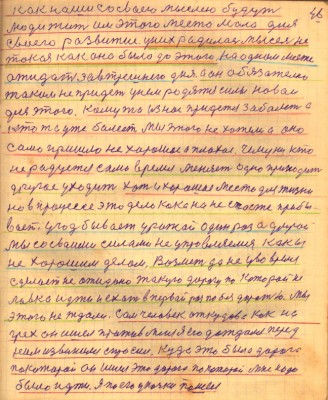 как наши со своей мыслею будут
люди жить им этого место мало для
своего развитие у них родилася мысля не
такая как она было до этого на одном месте
ожидать завтрешнего дня а он обязательно
таким не придет у нем родятся силы новая
для этого. Кому то из нас придется заболет а
кто то уже болеет мы этого не хотим а оно
само пришло не хорошее а плохая. Чему ни кто
не радуется само время меняет одно приходит
другое уходит Хоть и хорошая место для жизни
но в процессе это дело как она не
вает. угод бывает урожай один раз а другой
мы со своими силами не управляемся как
не хорошим делом. Возмет да не во время
сделает не ожидано такую дорогу по которой не
идти и ехать в первой раз по вод дорожки. Мы
этого не ждали. Сам человек откудова как на
грех он шел против мыля его дожидали перед
ним извиняли спросим. Куда это была дорога
по которой он шел это дорога по которой мы надо
было идти. Я по его